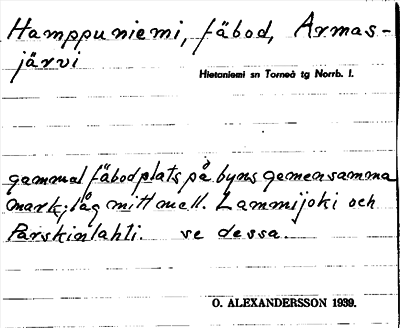 Hamppuniemi, fäbod, Armas-
järvi
Hietaniemi sn Torneå tg Norrb. l.
gammal fäbodplats på byns gemensamma
mark; låg mitt mell. Lammijoki och
Parskinlahti. se dessa.
O. ALEXANDERSSON 1939.